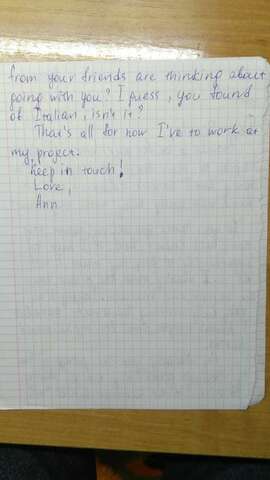 from your friends are thinking about
going with you? I guess, you found
of Italian, isn't it?
That's all for now I've to work at
my project.
Keep in touch!
Love,
Ann